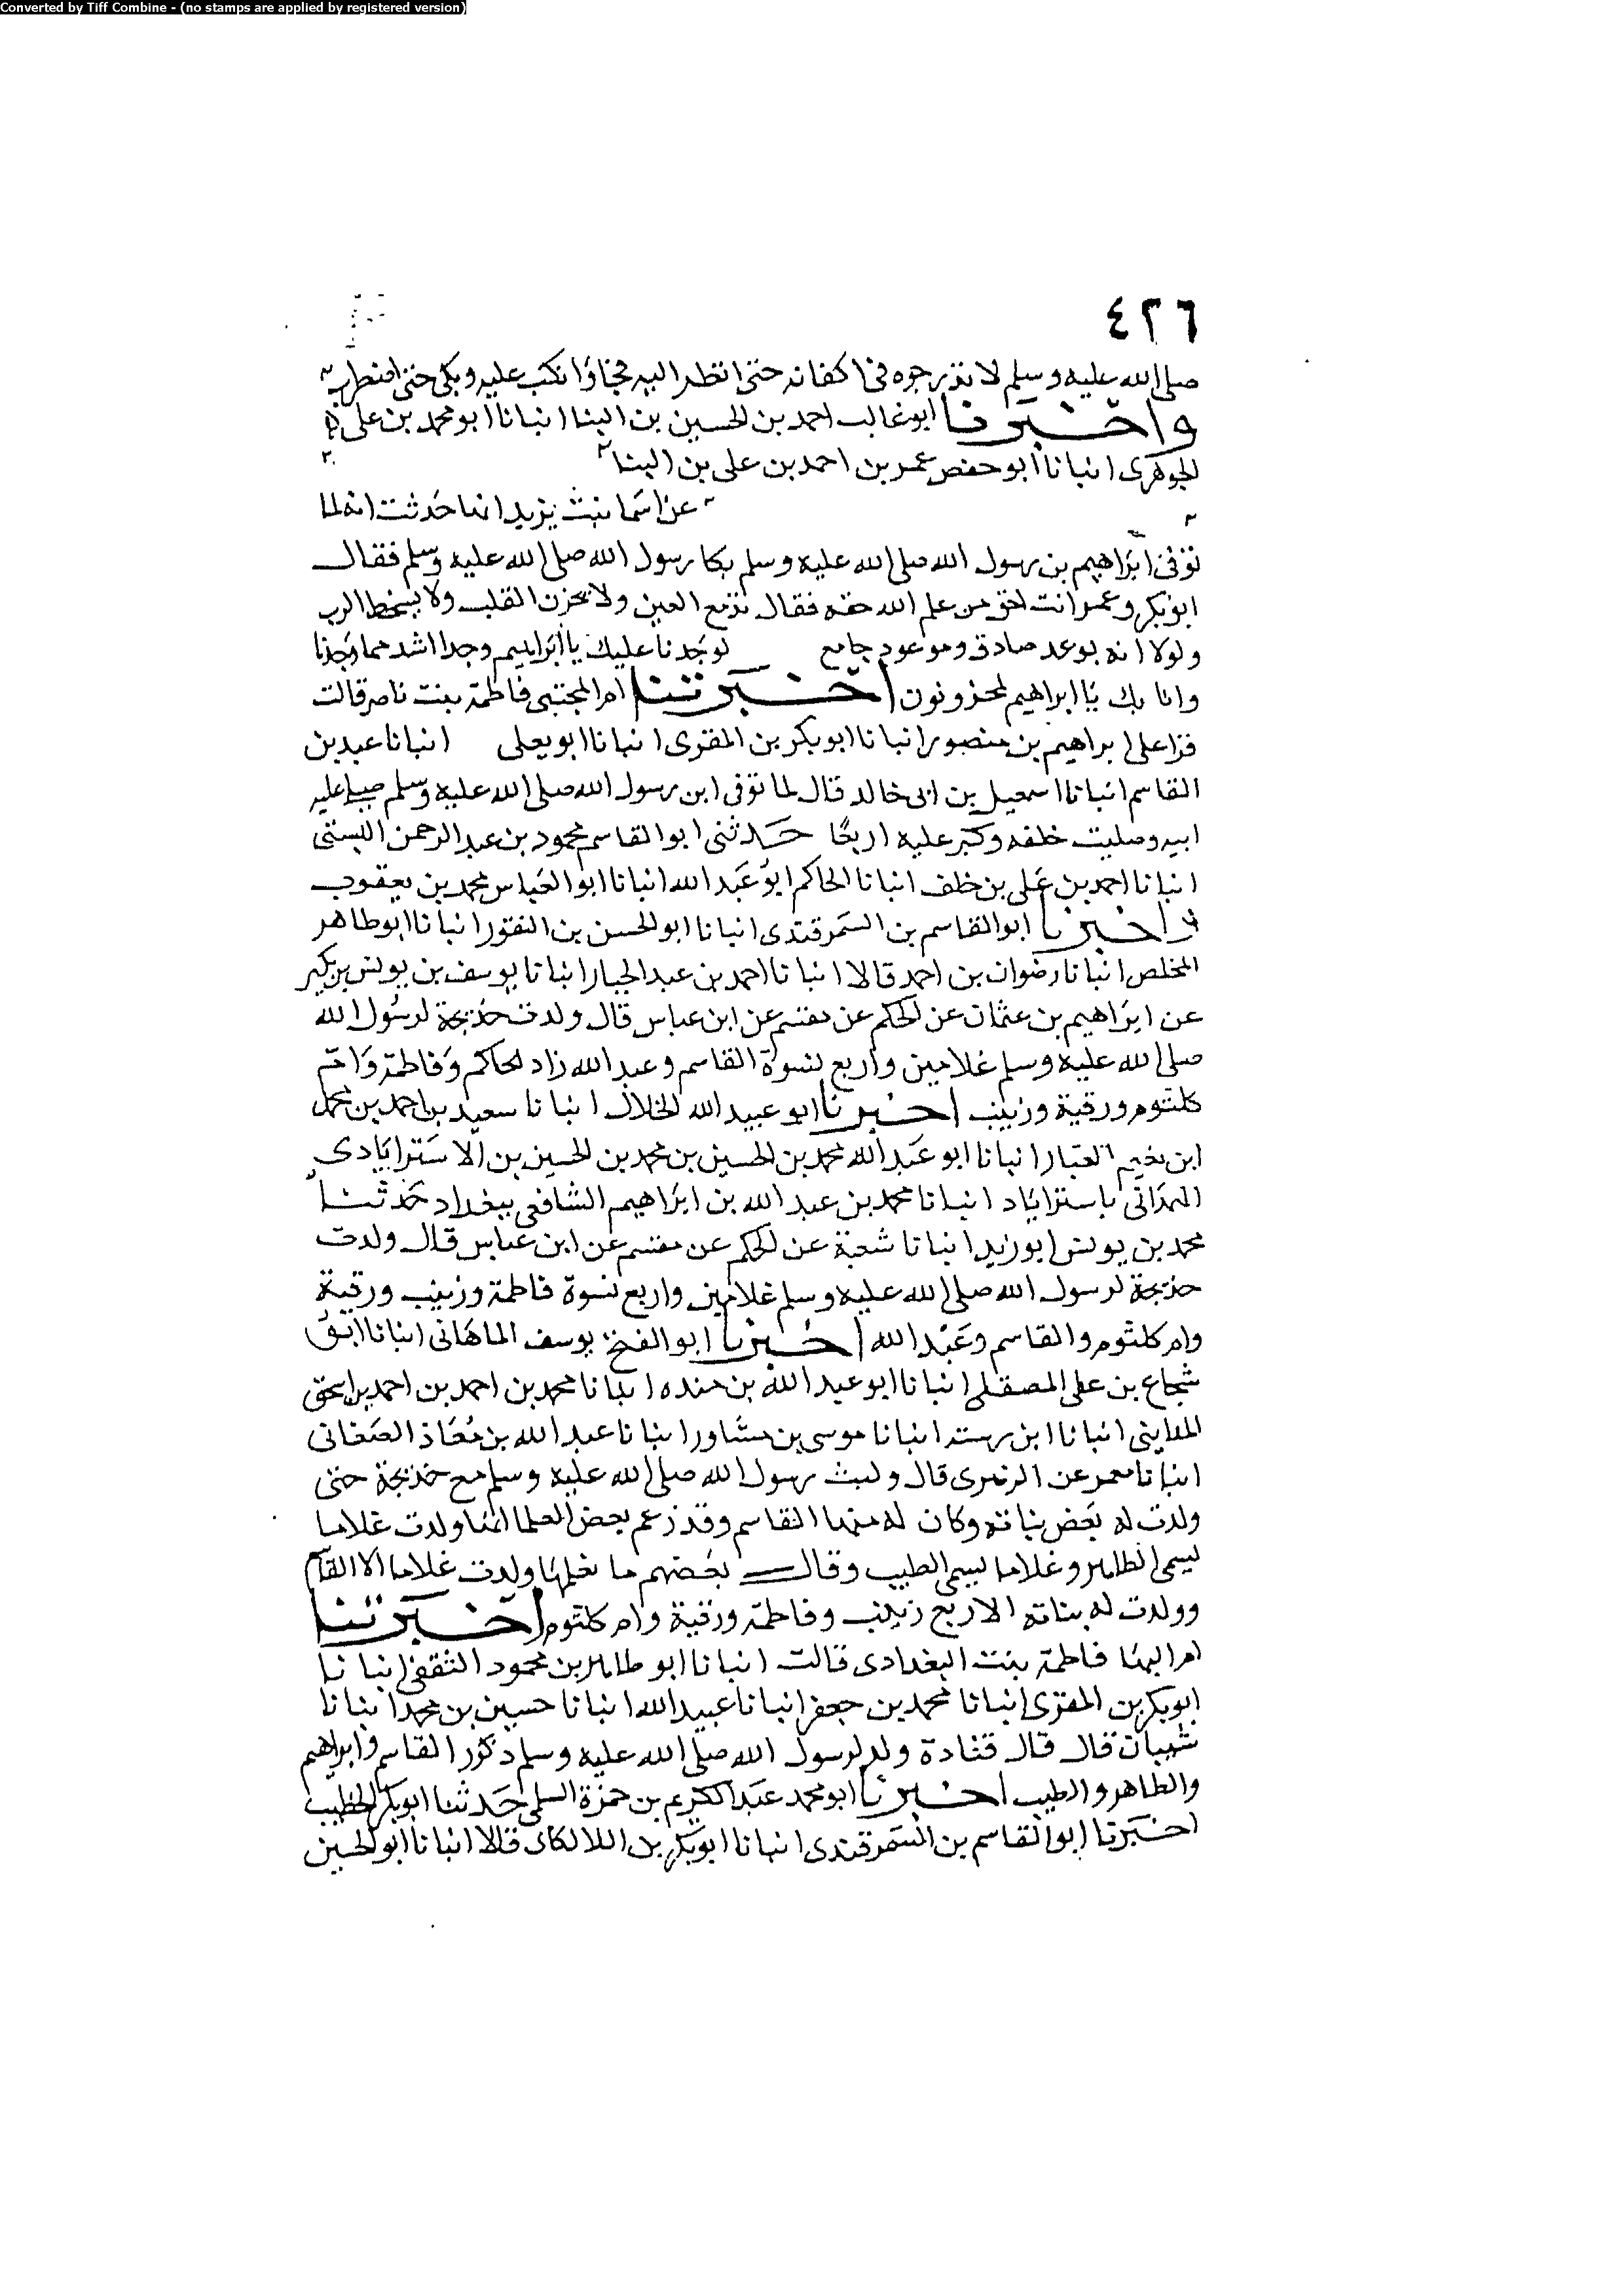 Converted by Tiff Combine - (no stamps are applied by registered version)
٤٢٦
صلى الله عليه وسلم لا تدرجوه فى اكفانه حتى انظر اليه فجاؤا نكب عليه وبكى حتى اضطرب
واخبرنا ابو غالب احمد بن الحسين بن البنا انبانا ابو محمد بن على
الجوهرى انبانا ابو حفص عمر بن احمد بن على بن البنا
عن اسما بنت يزيد انها حدثت انه لما
توفى ابراهيم بن رسول الله صلى الله عليه وسلم بكا رسول الله صلى الله عليه وسلم فقال
ابو بكر وعمر انت احق من علم الله حقه فقال تدمع العين ولا يحزن القلب ولا يسخط الرب
ولولا انه بوعد صادق وموعود جامع لوجدنا عليك يا ابراهيم وجدا اشد مما وجدنا
وانا بك يا ابراهيم لمحزونون اخبرتنا ام المجتبى فاطمة بنت ناصر قالت
قرا على ابراهيم بن منصور انبانا ابو بكر بن المقرى انبانا ابو يعلى انبانا عبد بن
القاسم انبانا اسمعيل بن ابى خالد قال لما توفى ابن رسول الله صلى الله عليه وسلم صلى عليه
ابيه وصليت خلفه وكبر عليه اربعا حدثنى ابو القاسم محمود بن عبد الرحمن البستى
انبانا احمد بن على بن خلف انبانا الحاكم ابو عبد الله انبانا ابو العباس محمد بن يعقوب
اخبرنا ابو القاسم بن السمرقندى انبانا ابو الحسن بن النقور انبانا ابو طاهر
المخلص انبانا رضوان بن احمد قالا انبانا احمد بن عبد الجبار انبانا يوسف بن يونس بن بكير
عن ابراهيم بن عثمان عن الحكم عن مقسم عن ابن عباس قال ولدت خديجة لرسول الله
صلى الله عليه وسلم غلامين واربع نسوة القاسم وعبد الله زاد الحاكم وفاطمة وام
كلثوم ورقية وزينب اخبرنا ابو عبيد الله الخلال انبانا سعيد بن احمد بن محمد
ابن نعيم العيار انبانا ابو عبد الله محمد بن الحسين بن محمد بن الحسين بن الاستراباذى
الهمذانى باستراباد انبانا محمد بن عبد الله بن ابراهيم الشافعى ببغداد حدثنا
محمد بن يونس ابو زيد انبانا شعبة عن الحكم عن مقسم عن ابن عباس قال ولدت
خديجة لرسول الله صلى الله عليه وسلم غلامين واربع نسوة فاطمة وزينب ورقية
وام كلثوم والقاسم وعبد الله اخبرنا ابو الفتح يوسف الماهانى انبانا ابو
شجاع بن على المصقلى انبانا ابو عبد الله بن منده انبانا محمد بن احمد بن احمد بن اسحق
المداينى انبانا ابن رسته انبانا موسى بن مساور انبانا عبد الله بن معاذ الصنعانى
انبانا معمر عن الزهرى قال ولبث رسول الله صلى الله عليه وسلم مع خديجة حتى
ولدت له بعض بناته وكان له منها القاسم وقد زعم بعض العلما انها ولدت غلاما
يسمى الطاهر وغلاما يسمى الطيب وقال بعضهم ما نعلمها ولدت غلاما الا القاسم
وولدت له بناته الاربع زينب وفاطمة ورقية وام كلثوم اخبرتنا
ام البها فاطمة بنت البغدادى قالت انبانا ابو طاهر بن محمود الثقفى انبانا
ابو بكر بن المقرى انبانا محمد بن جعفر انبانا عبيد الله انبانا حسين بن محمد انبانا
شيبان قال قال قتادة ولد لرسول الله صلى الله عليه وسلم ذكور القاسم وابراهيم
والطاهر والطيب اخبرنا ابو محمد عبد الكريم بن حمزة السلمى حدثنا ابو بكر الخطيب
اخبرنا ابو القاسم بن السمرقندى انبانا ابو بكر بن اللالكاى قالا انبانا ابو الحسين